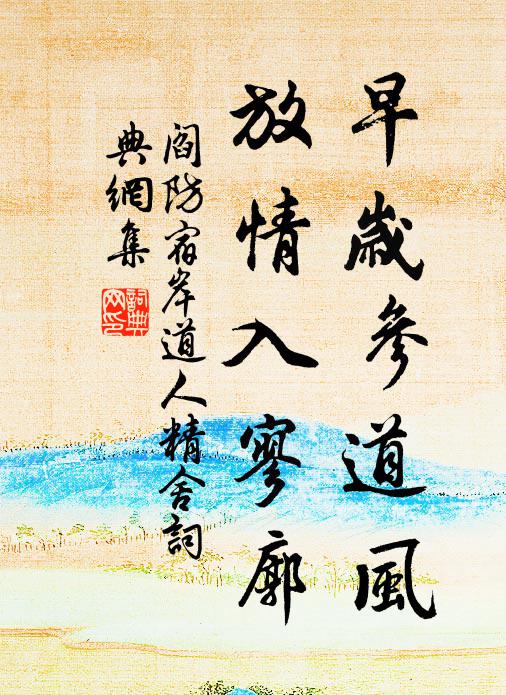 早歲參道風
放情入寥廓
閻防宿岸道人精舍詞
典網集
詞典
网印